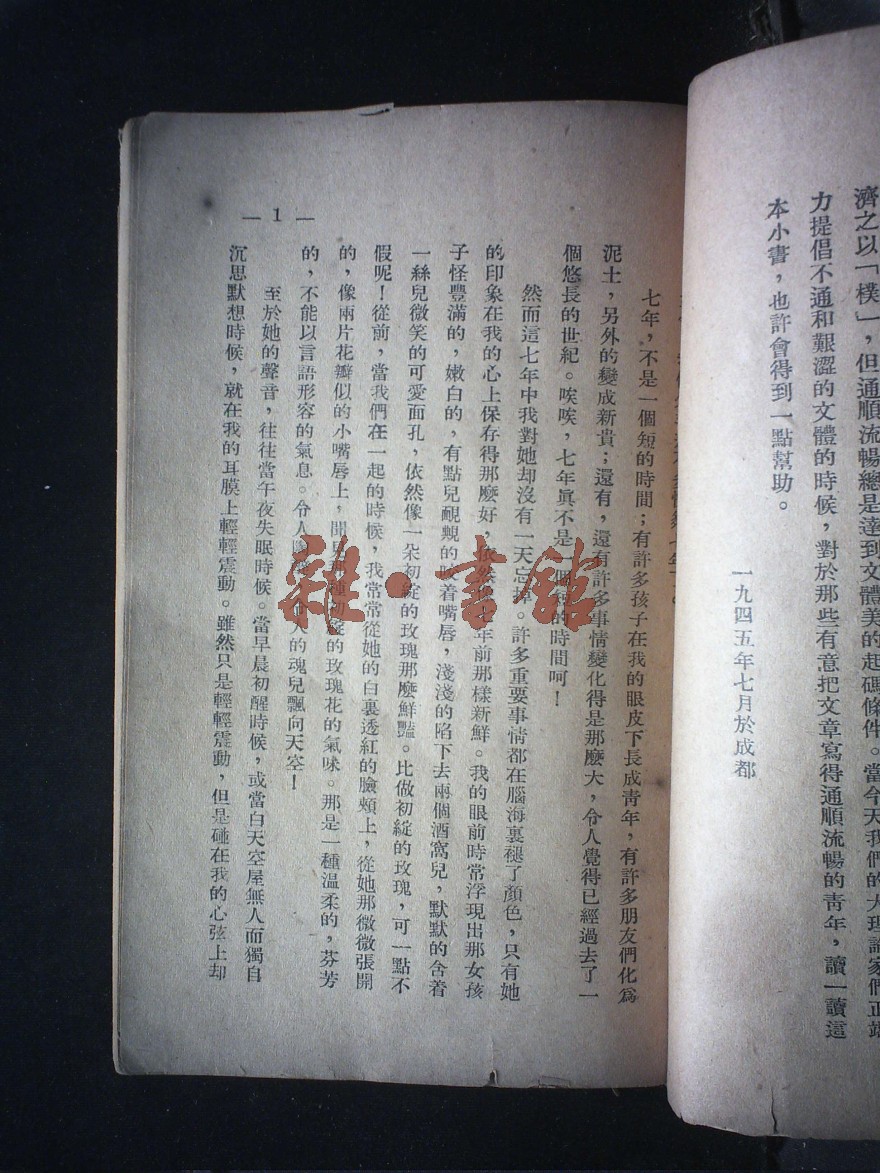 濟之以「樸」，但通順流暢總是達到文體美的起碼條件。當今天我們的大理論家們正竭
力提倡不通和艱澀的文體的時候，對於那些有意把文章寫得通順流暢的青年，讀一讀這
本小書，也許會得到一點幫助。
一九四五年七月於成都
七年，不是一個短的時間；有許多孩子在我的眼皮下長成青年，有許多朋友們化爲
泥土，另外的變成新貴；還有，還有許多事情變化得是那麼大，令人覺得已經過去了一
個悠長的世紀。唉唉，七年眞不是一個短的時間呵！
然而這七年中我對她却沒有一天忘掉。許多重要事情都在腦海裏褪了顏色，只有她
的印象在我的心上保存得那麼好，依然像七年前那樣新鮮。我的眼前時常浮現出那女孩
子怪豐滿的，嫩白的，有點兒靦覥的咬着嘴唇，淺淺的陷下去兩個酒窩兒，默默的含着
一絲兒微笑的可愛面孔，依然像一朵初綻的玫瑰那麼鮮豔。比做初綻的玫瑰，可一點不
假呢！從前，當我們在一起的時候，我常常從她的白裏透紅的臉頰上，從她那微微張開
的，像兩片花瓣似的小嘴唇上，聞見那種初綻的玫瑰花的氣味。那是一種溫柔的，芬芳
的，不能以言語形容的氣息。令人陶 人的魂兒飄向天空！
至於她的聲音，往往當午夜失眠時候。當早晨初醒時候，或當白天空屋無人而獨自
沉思默想時候，就在我的耳膜上輕輕震動。雖然只是輕輕震動，但是碰在我的心弦上却
— 1 —
雜·書館